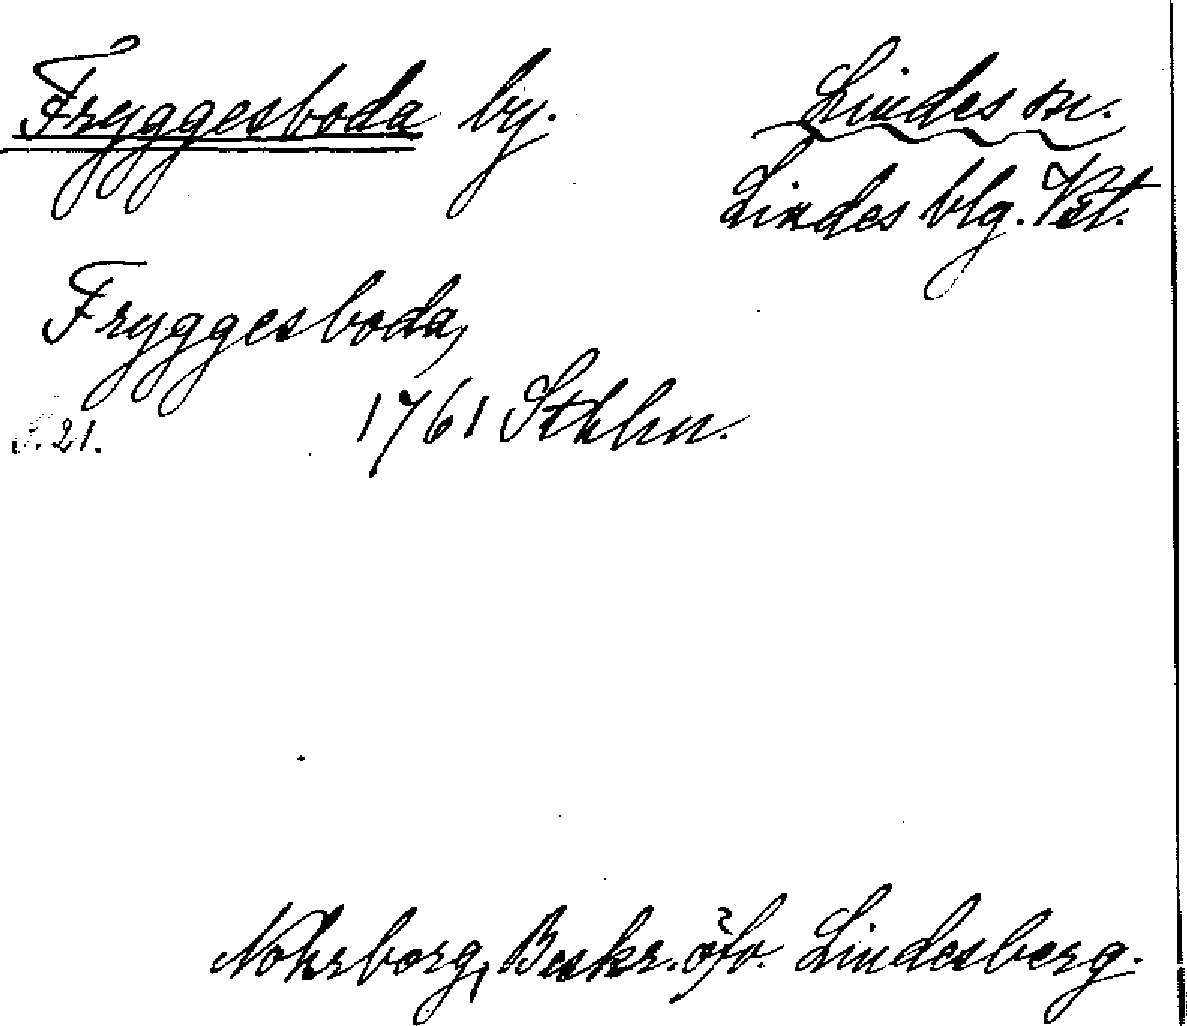 Fryggesboda by. Lindes sn.
Lindes blg. Vst.
Fryggesboda,
S. 21. 1761 Sthlm.
Nohrborg, Beskr. öfv. Lindesberg.